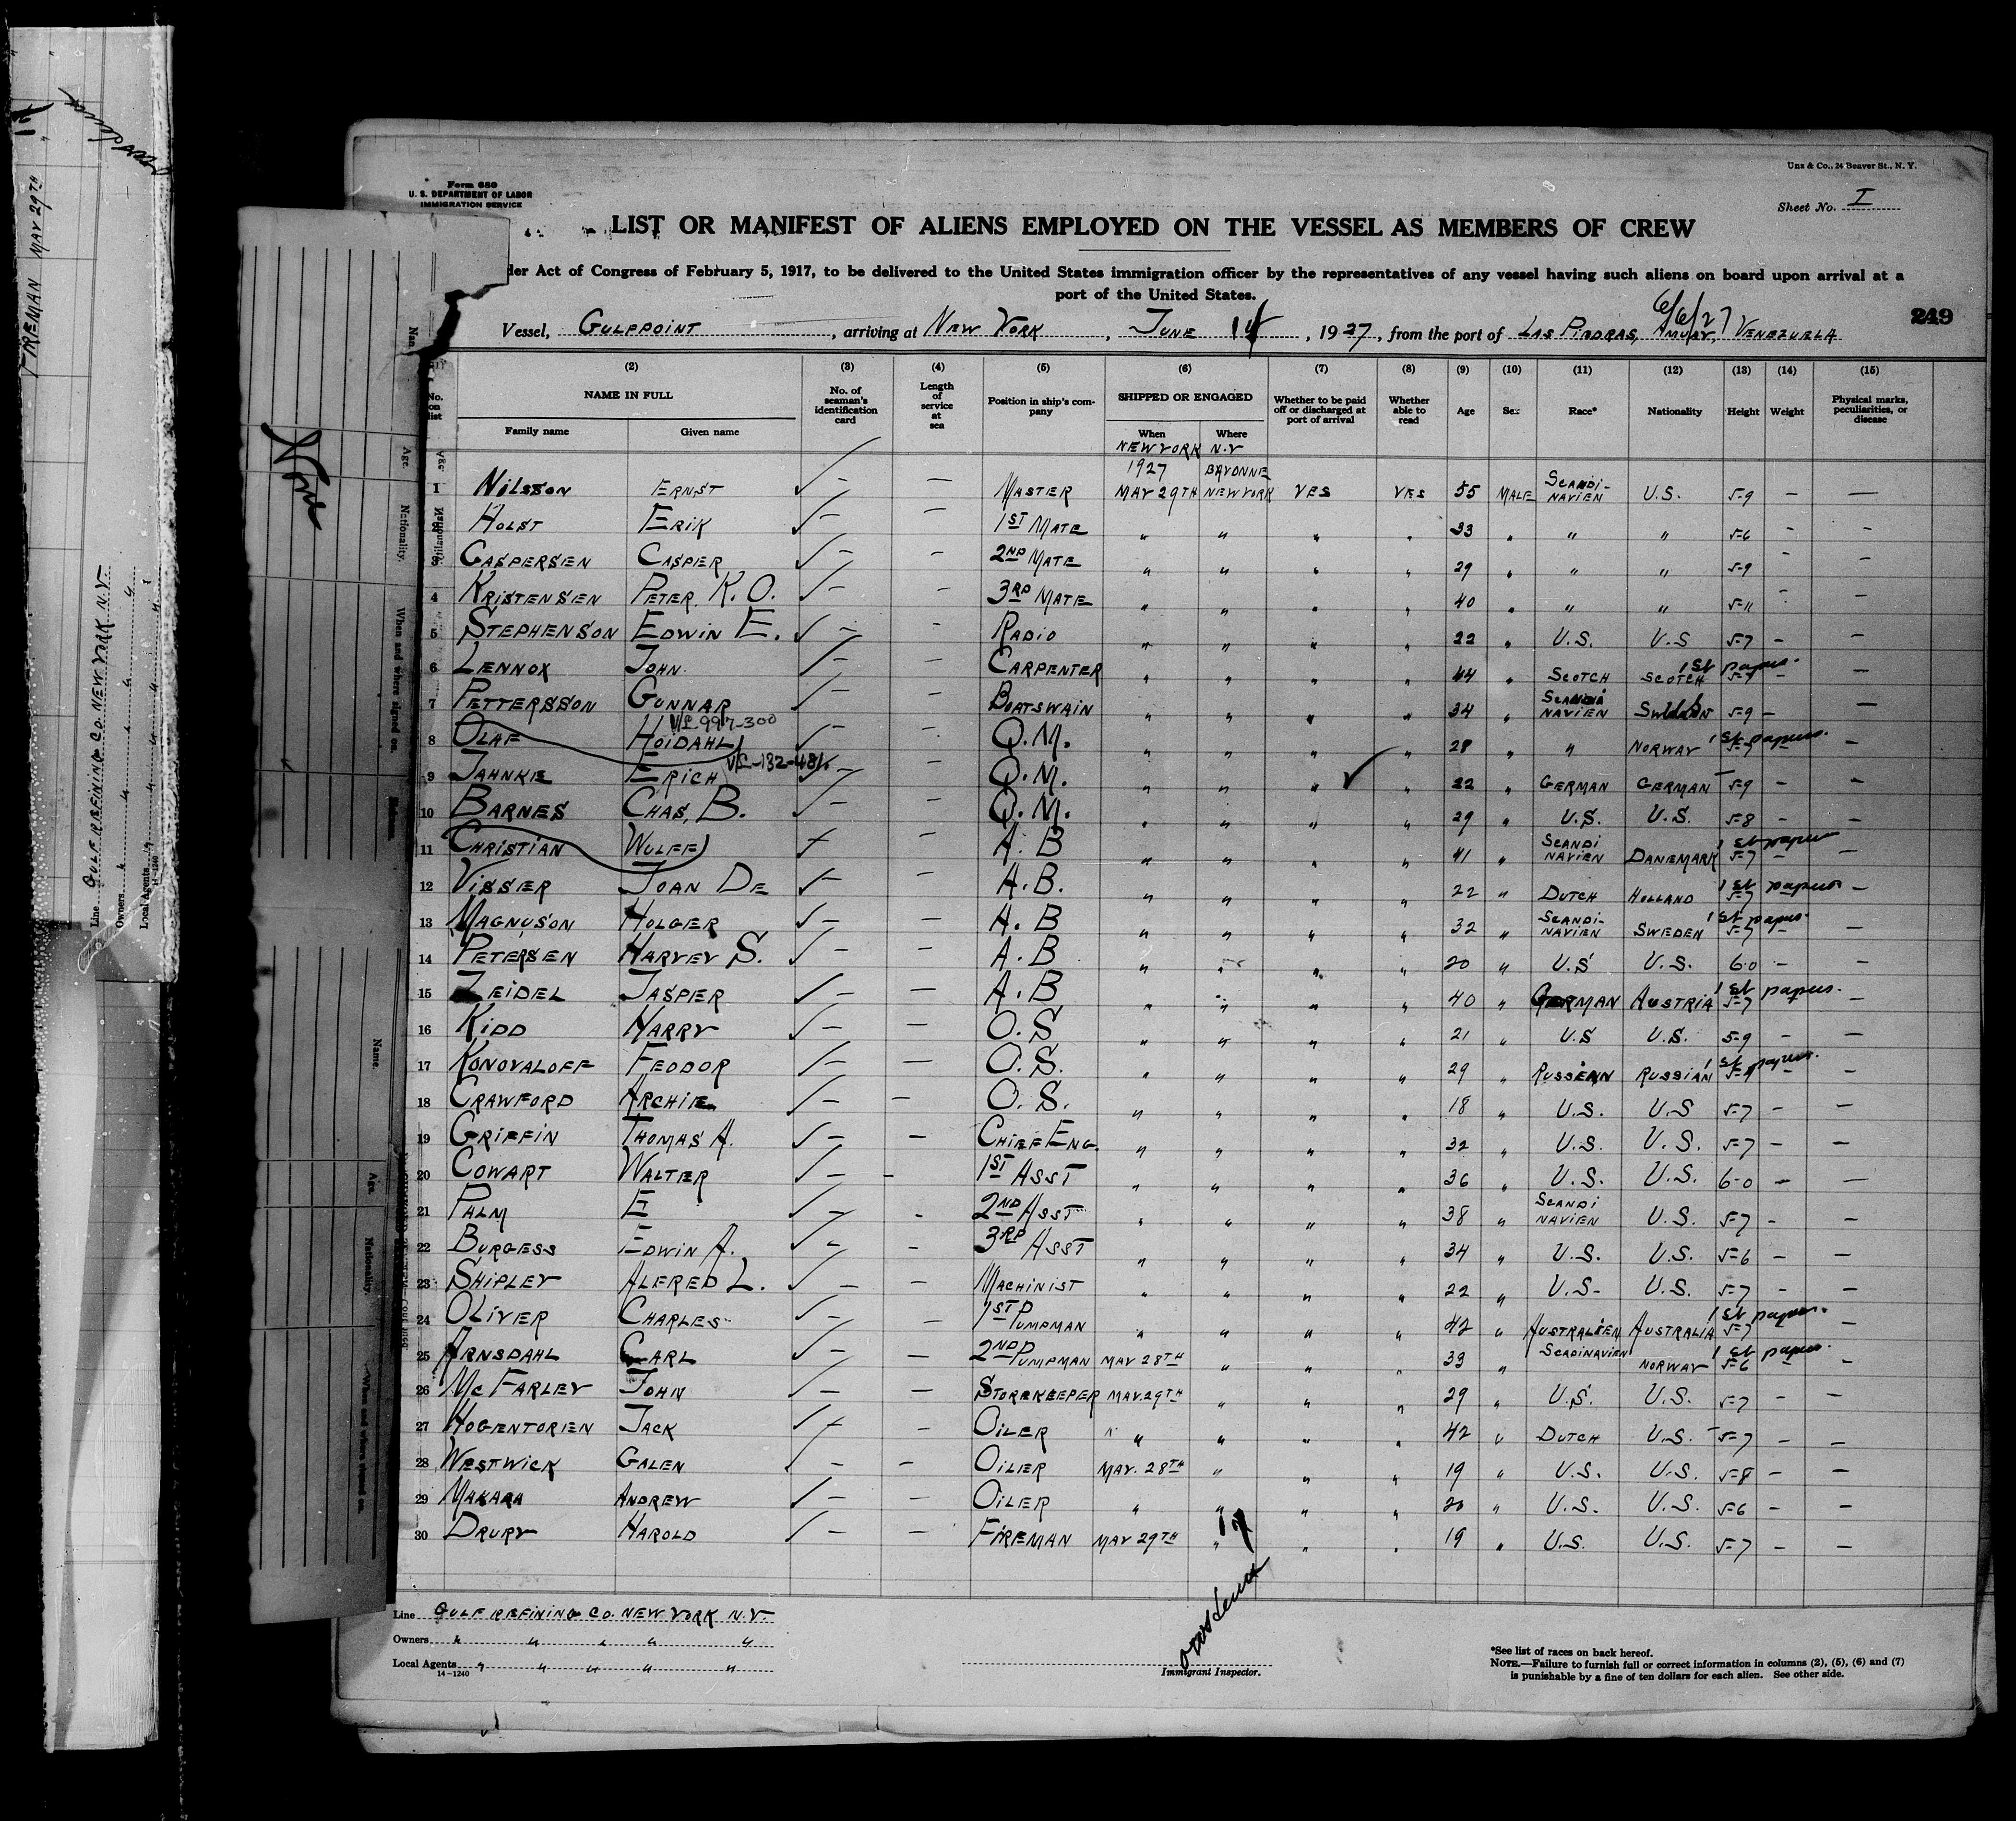 Unz & Co., 24 Beaver St., N. Y.
Form 680
U. S. DEPARTMENT OF LABOR
IMMIGRATION SERVICE
Sheet No. I
LIST OR MANIFEST OF ALIENS EMPLOYED ON THE VESSEL AS MEMBERS OF CREW
der Act of Congress of February 5, 1917, to be delivered to the United States immigration officer by the representatives of any vessel having such aliens on board upon arrival at a
port of the United States.
6/6/27
249
Vessel, GULFPOINT, arriving at NEW YORK, JUNE 14, 1927, from the port of LAS PIEDRAS, AMUAY, VENEZUELA
(2) (3) (4) (5) (6) (7) (8) (9) (10) (11) (12) (13) (14) (15)
No. on list NAME IN FULL No. of seaman's identification card Length of service at sea Position in ship's company SHIPPED OR ENGAGED Whether to be paid off or discharged at port of arrival Whether able to read Age Sex Race* Nationality Height Weight Physical marks, peculiarities, or disease
Family name Given name When Where
NEW YORK N.Y
1927 BAYONNE
1 NILSSON ERNST ✓ — — MASTER MAY 29TH NEW YORK YES YES 55 MALE SCANDI-NAVIEN U.S. 5-9 — —
2 HOLST ERIK ✓ — — 1ST MATE " " " " 33 " " " 5-6 — —
3 CASPERSEN CASPER ✓ — — 2ND MATE " " " " 29 " " " 5-9 — —
4 KRISTENSEN PETER K.O. ✓ — — 3RD MATE " " " " 40 " " " 5-11 — —
5 STEPHENSON EDWIN E. ✓ — — RADIO " " " " 22 " U.S. U.S 5-7 — —
6 LENNOX JOHN ✓ — — CARPENTER " " " " 44 " SCOTCH SCOTCH 1st papers. 5-7 — —
7 PETTERSSON GUNNAR ✓ — — BOATSWAIN " " " " 34 " SCANDINAVIEN 5-9 — —
VL 997-300
8 OLAF HOIDAHL ✓ — — Q.M. " " " " 28 " " NORWAY 1st papers. 5-7 — —
VL-132-481
9 JAHNKE ERICH ✓ — — Q.M. " " " ✓ " 22 " GERMAN GERMAN 5-9 — —
10 BARNES CHAS, B. ✓ — — Q.M. " " " " 29 " U.S. U.S. 5-8 — —
11 CHRISTIAN WULFF — A.B " " " " 41 " SCANDINAVIEN DANEMARK 1st papers 5-7 — —
12 VISSER JOAN DE ✓ — — A.B. " " " " 22 " DUTCH HOLLAND 1st papers 5-7 —
13 MAGNUSON HOLGER ✓ — — A.B " " " " 32 " SCANDI-NAVIEN SWEDEN 1st papers. 5-7 — —
14 PETERSEN HARVEY S. ✓ — — A.B " " " " 20 " U.S U.S. 6-0 — —
15 ZEIDEL JASPER ✓ — — A.B " " " " 40 " GERMAN AUSTRIA 1st papers. 5-7 — —
16 KIDD HARRY ✓ — — O.S " " " " 21 " U.S U.S. 5-9 — —
17 KONOVALOFF FEODOR ✓ — — O.S. " " " " 29 " RUSSIAN RUSSIAN 1st papers. — —
18 CRAWFORD ARCHIE ✓ — — O.S. " " " " 18 " U.S. U.S 5-7 — —
19 GRIFFIN THOMAS A. ✓ — — CHIEF ENG. " " " " 32 " U.S. U.S. 5-7 — —
20 COWART WALTER ✓ — — 1ST ASST " " " " 36 " U.S. U.S. 6-0 — —
21 PALM E ✓ — — 2ND ASST " " " " 38 " SCANDINAVIEN U.S. 5-7 — —
22 BURGESS EDWIN A. ✓ — — 3RD ASST " " " " 34 " U.S. U.S. 5-6 — —
23 SHIPLEY ALFRED L. ✓ — — MACHINIST " " " " 22 " U.S- U.S. 5-7 — —
24 OLIVER CHARLES ✓ — — 1ST PUMPMAN " " " " 42 " AUSTRALIEN AUSTRALIA 1st papers. 5-7 —
25 ARNSDAHL CARL ✓ — — 2ND PUMPMAN MAY 28TH " " " 33 " SCADINAVIEN NORWAY 1st papers. 5-6 — —
26 MC FARLEY JOHN ✓ — — STOREKEEPER MAY.29TH " " " 29 " U.S. U.S. 5-7 — —
27 HOGENTORIEN JACK ✓ — — OILER " " " " 42 " DUTCH U.S. 5-7 — —
28 WESTWICK GALEN ✓ — — OILER MAY. 28TH " " " 19 " U.S. U.S. 5-8 — —
29 MAKARA ANDREW ✓ — — OILER " " " " 20 " U.S. U.S. 5-6 — —
30 DRURY HAROLD ✓ — — FIREMAN MAY 29TH " " " 19 " U.S. U.S. 5-7 — —
Line GULF REFINING CO. NEW YORK N.Y.
Owners " " " " "
Local Agents " " " " "
14-1240
Immigrant Inspector.
*See list of races on back hereof.
NOTE.—Failure to furnish full or correct information in columns (2), (5), (6) and (7)
is punishable by a fine of ten dollars for each alien. See other side.
None
Age.
Nationality.
When and where signed on.
Name.
Age.
Nationality.
When and where signed on.
FIREMAN MAY 29TH
Line GULF REFINING CO. NEW YORK N.Y.
Owners " " " " "
Local Agents " " " " "
14-1240